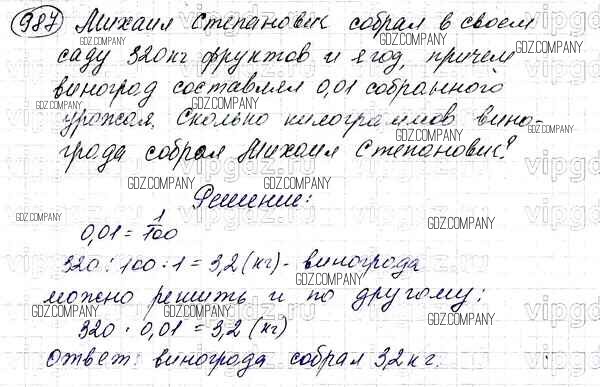 987 Михаил Степанович собрал в своем
саду 320кг фруктов и ягод, причем
виноград составлял 0,01 собранного
урожая. Сколько килограммов вино-
града собрал Михаил Степанович?
Решение:
0,01 = 1/100
320 : 100 · 1 = 3,2 (кг) - винограда
можно решить и по другому:
320 · 0,01 = 3,2 (кг)
Ответ: винограда собрал 3,2 кг.